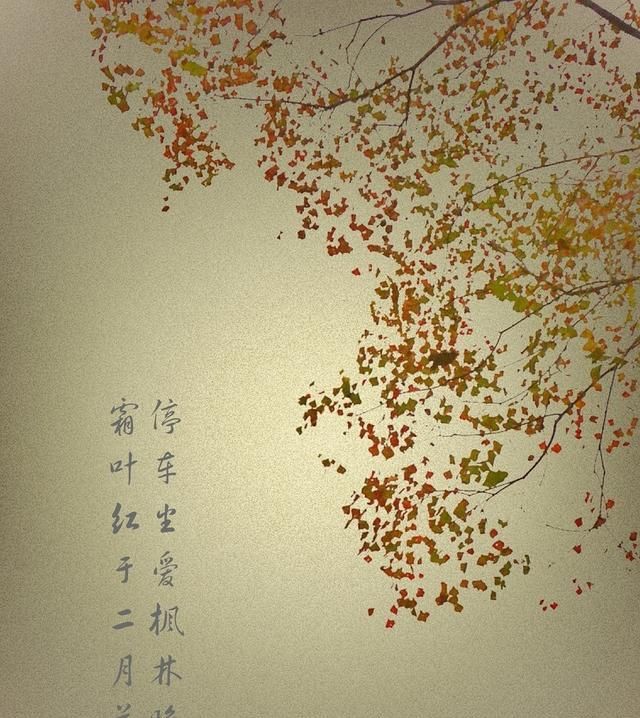 停车坐爱枫林
霜叶红于二月